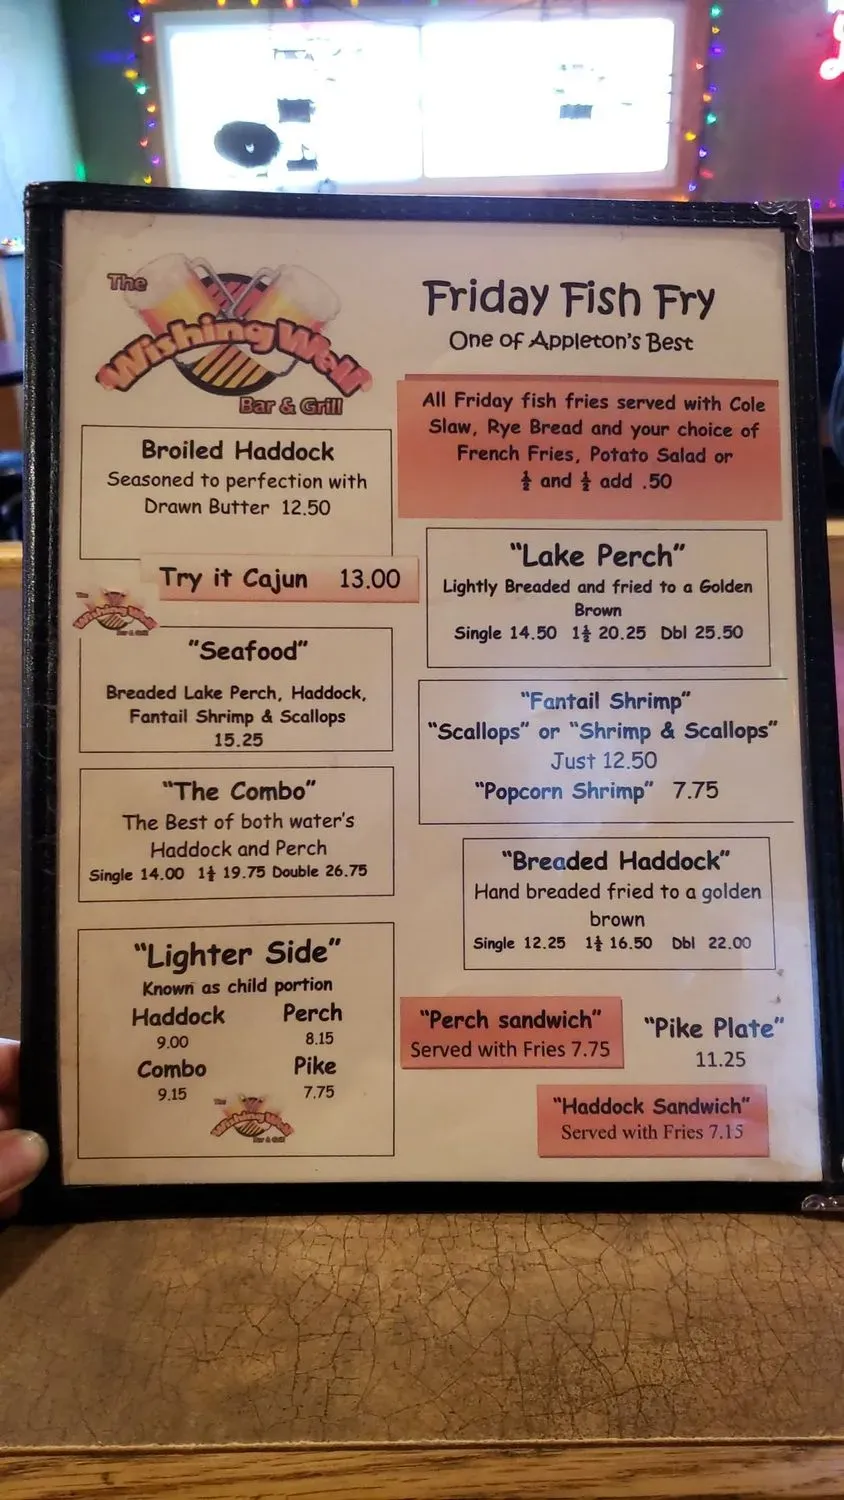 The
Wishing Well
Bar & Grill
Friday Fish Fry
One of Appleton's Best
All Friday fish fries served with Cole
Slaw, Rye Bread and your choice of
French Fries, Potato Salad or
½ and ½ add .50
Broiled Haddock
Seasoned to perfection with
Drawn Butter 12.50
Try it Cajun 13.00
The
Wishing Well
Bar & Grill
"Seafood"
Breaded Lake Perch, Haddock,
Fantail Shrimp & Scallops
15.25
"The Combo"
The Best of both water's
Haddock and Perch
Single 14.00 1½ 19.75 Double 26.75
"Lighter Side"
Known as child portion
Haddock Perch
9.00 8.15
Combo Pike
9.15 7.75
The
Wishing Well
Bar & Grill
"Lake Perch"
Lightly Breaded and fried to a Golden
Brown
Single 14.50 1½ 20.25 Dbl 25.50
"Fantail Shrimp"
"Scallops" or "Shrimp & Scallops"
Just 12.50
"Popcorn Shrimp" 7.75
"Breaded Haddock"
Hand breaded fried to a golden
brown
Single 12.25 1½ 16.50 Dbl 22.00
"Perch sandwich"
Served with Fries 7.75
"Pike Plate"
11.25
"Haddock Sandwich"
Served with Fries 7.15